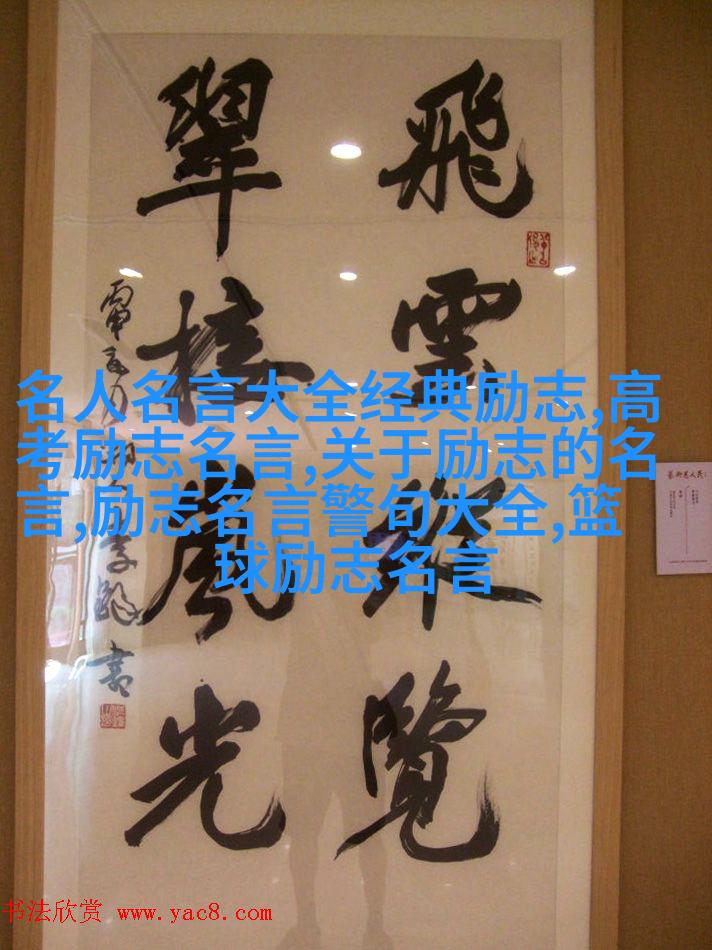 飛雲縱覽
翠接嵐光
名人名言大全经典励志,高
考励志名言,关于励志的名
言,励志名言警句大全,篮
球励志名言
书法欣赏 www.yac8.com